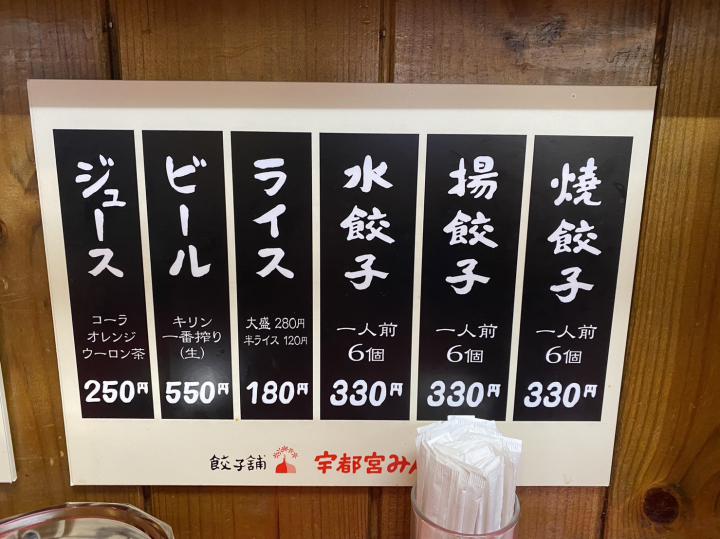 焼餃子
一人前
6個
330円
揚餃子
一人前
6個
330円
水餃子
一人前
6個
330円
ライス
大盛 280円
半ライス 120円
180円
ビール
キリン
一番搾り
(生)
550円
ジュース
コーラ
オレンジ
ウーロン茶
250円
餃子舗 宇都宮み